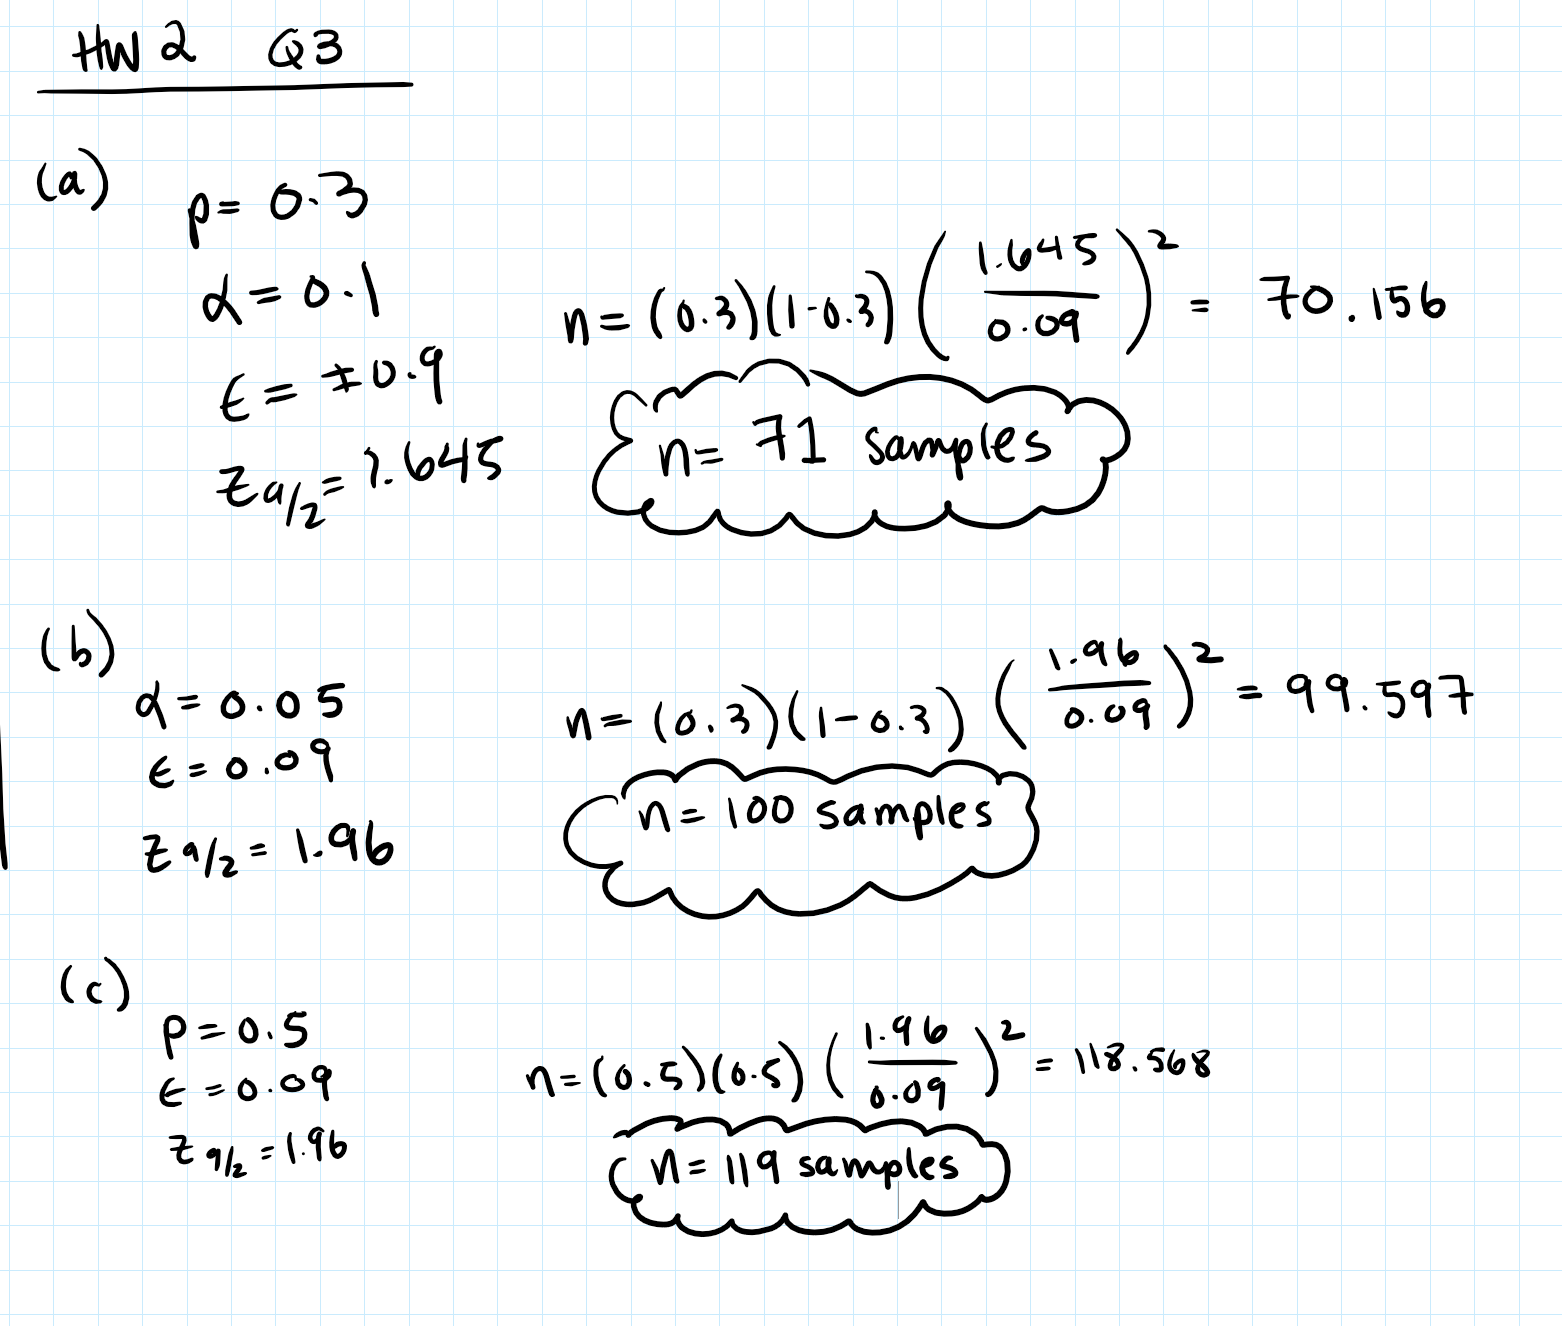 HW 2 Q3
(a)
p = 0.3
α = 0.1
ϵ = ±0.9
z α/2 = 1.645
n = (0.3)(1-0.3) (1.645/0.09)² = 70.156
n = 71 samples
(b)
α = 0.05
ϵ = 0.09
z α/2 = 1.96
n = (0.3)(1-0.3) (1.96/0.09)² = 99.597
n = 100 samples
(c)
p = 0.5
ϵ = 0.09
z α/2 = 1.96
n = (0.5)(0.5) (1.96/0.09)² = 118.568
n = 119 samples